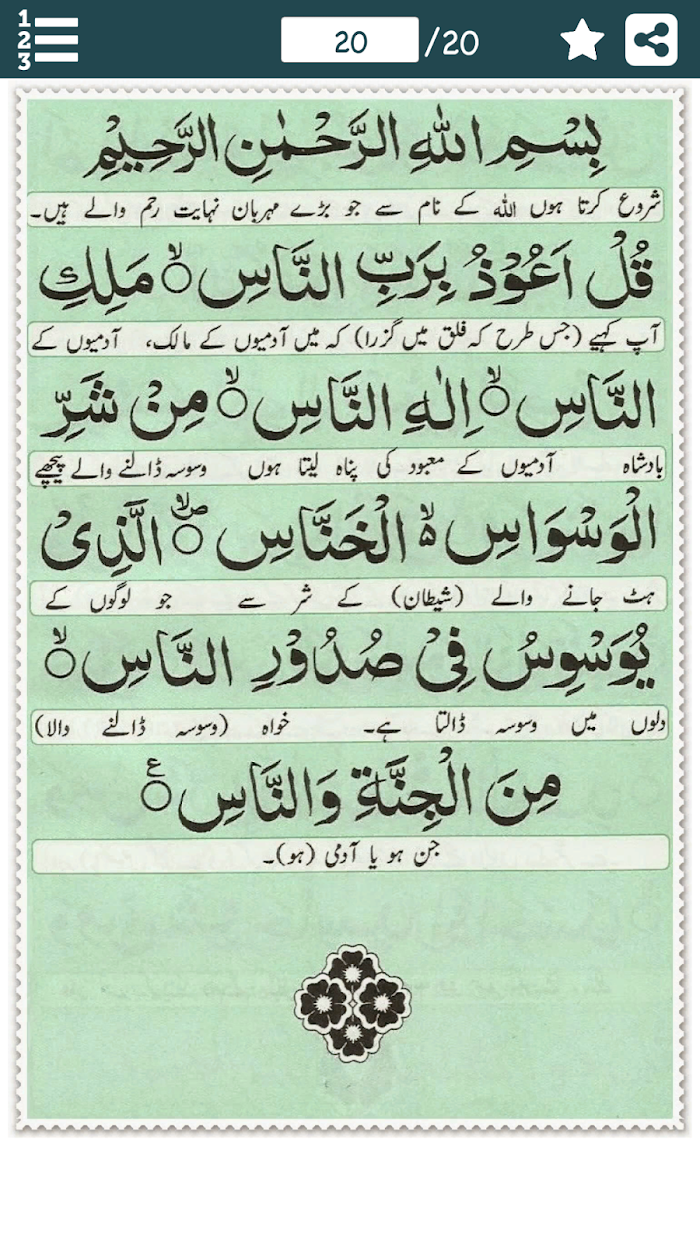 1
2
3
20 /20
بِسْمِ اللهِ الرَّحْمٰنِ الرَّحِيْمِ
شروع کرتا ہوں اللہ کے نام سے جو بڑے مہربان نہایت رحم والے ہیں۔
قُلْ اَعُوْذُ بِرَبِّ النَّاسِ ۙ مَلِكِ
آپ کہیے (جس طرح کہ فلق میں گزرا) کہ میں آدمیوں کے مالک، آدمیوں کے
النَّاسِ ۙ اِلٰهِ النَّاسِ ۙ مِنْ شَرِّ
بادشاہ آدمیوں کے معبود کی پناہ لیتا ہوں وسوسہ ڈالنے والے پیچھے
الْوَسْوَاسِ ۙ۬ الْخَنَّاسِ ۪ۙ الَّذِیْ
ہٹ جانے والے (شیطان) کے شر سے جو لوگوں کے
يُوَسْوِسُ فِیْ صُدُوْرِ النَّاسِ ۙ
دلوں میں وسوسہ ڈالتا ہے۔ خواہ (وسوسہ ڈالنے والا)
مِنَ الْجِنَّةِ وَالنَّاسِ ع
جن ہو یا آدمی (ہو)۔